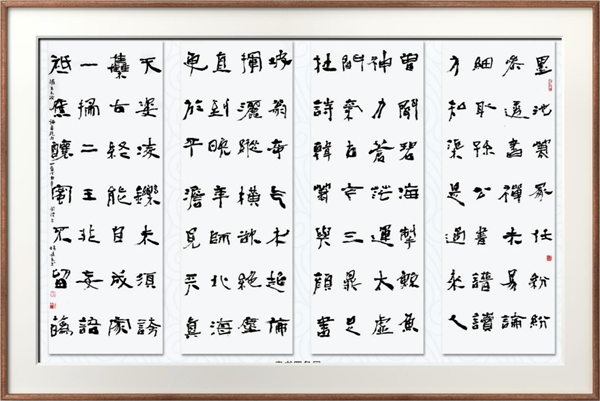 墨池篆冢任紛紛
參透書禪未易論
細取孫公書譜讀
方知渠是過來人
曾聞碧海掣鯨魚
神力蒼茫運太虛
間氣古今三鼎足
杜詩韓筆與顏書
坡翁奇氣本超倫
揮灑縱橫欲絕塵
直到晚年師北海
更於平澹見天真
天姿凌轢未須誇
集古終能自成家
一掃二王非妄語
祗應釀蜜不留